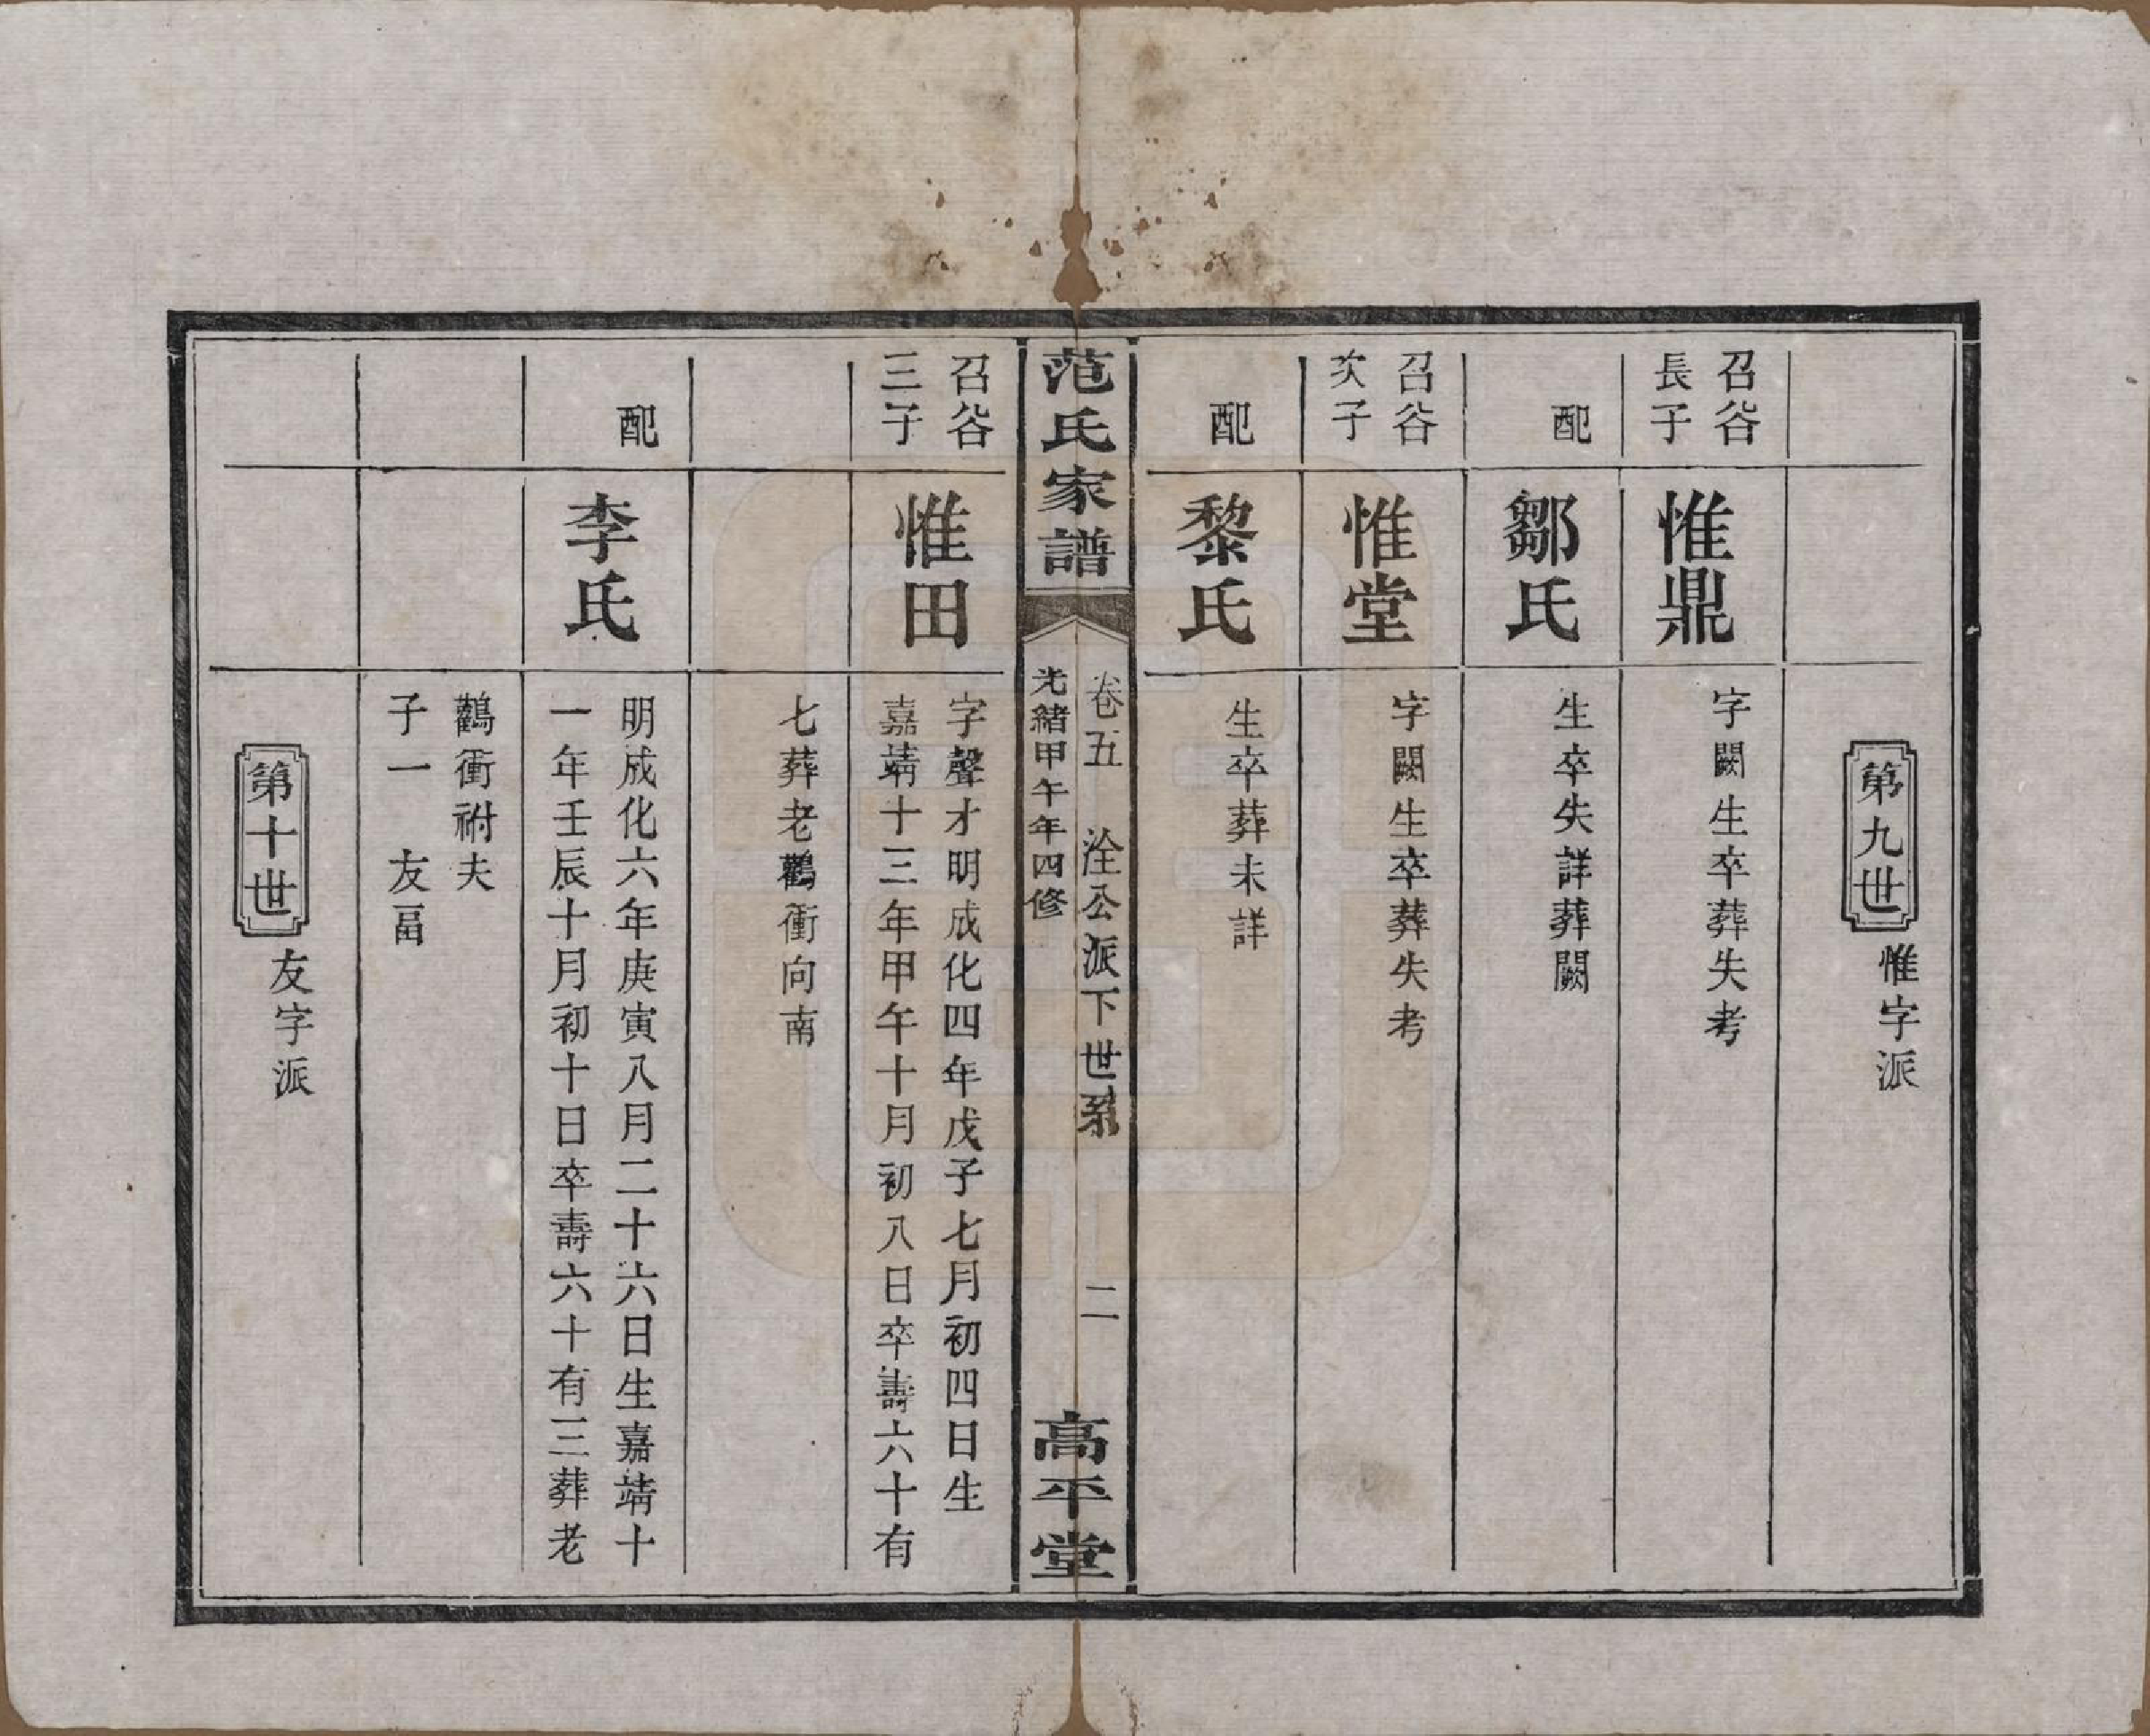 第九世
惟字派
召谷
長子
惟鼎
字闕生卒葬失考
配
鄒氏
生卒失詳葬闕
召谷
次子
惟堂
字闕生卒葬失考
配
黎氏
生卒葬未詳
范氏家譜
卷五 洤公派下世系 二
光緒甲午年四修
高平堂
召谷
三子
惟田
字聲才明成化四年戊子七月初四日生
嘉靖十三年甲午十月初八日卒壽六十有
七葬老鸛衝向南
配
李氏
明成化六年庚寅八月二十六日生嘉靖十
一年壬辰十月初十日卒壽六十有三葬老
鸛衝祔夫
子一 友畐
第十世
友字派